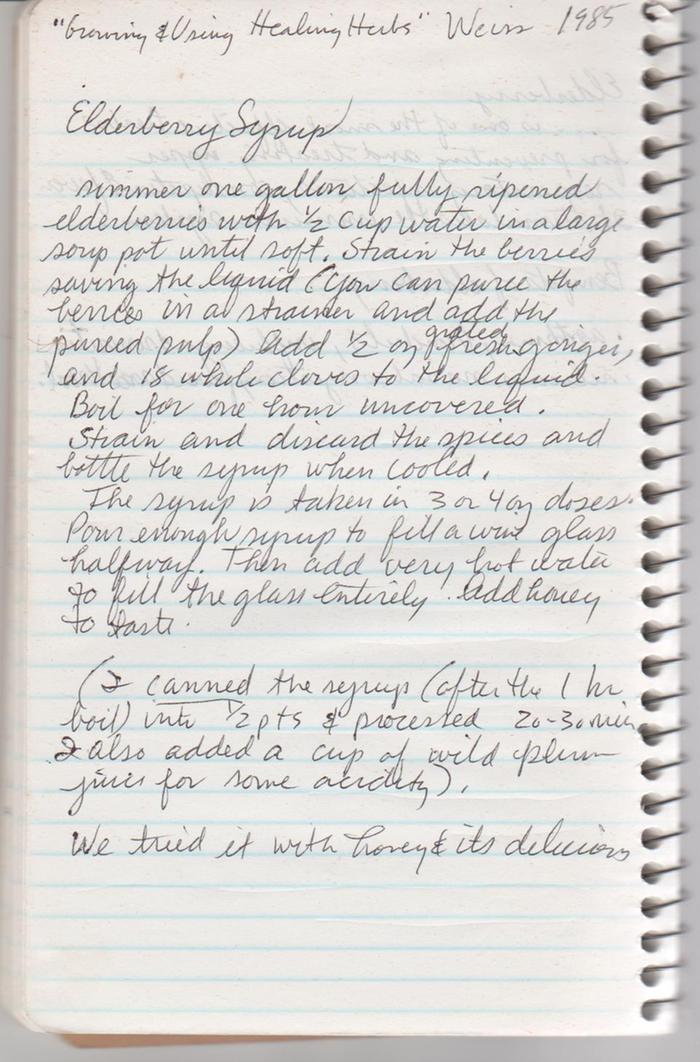 "Growing & Using Healing Herbs" Weiss 1985
Elderberry Syrup
simmer one gallon fully ripened
elderberries with ½ cup water in a large
soup pot until soft. Strain the berries
saving the liquid (you can puree the
berries in a strainer and add the
pureed pulp) add ½ oz grated fresh ginger,
and 18 whole cloves to the liquid.
Boil for one hour uncovered.
Strain and discard the spices and
bottle the syrup when cooled.
The syrup is taken in 3 or 4 oz doses.
Pour enough syrup to fill a wine glass
halfway. Then add very hot water
to fill the glass entirely. Add honey
to taste.
(I canned the syrup (after the 1 hr
boil) into ½ pts & processed 20-30 min.
I also added a cup of wild plum
juice for some acidity).
We tried it with honey & its delicious